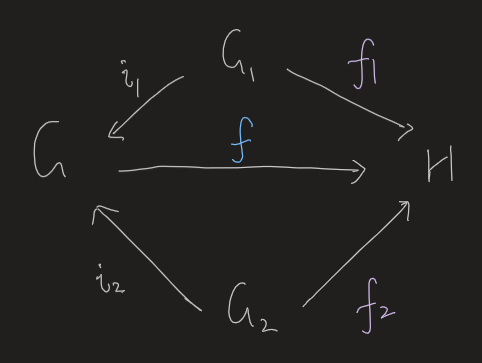 G₁
i₁
f₁
G
f
H
i₂
G₂
f₂